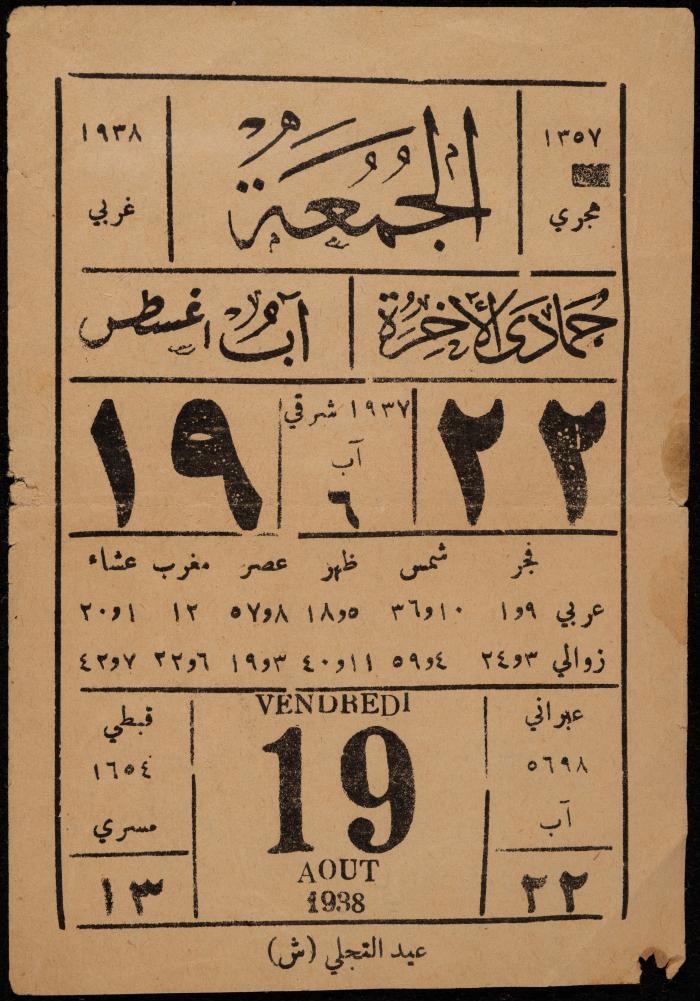 ١٣٥٧ الجمعة ١٩٣٨
هجري غربي
جمادى الآخرة آب اغسطس
٢٢ ١٩٣٧ شرقي ١٩
آب
٦
فجر شمس ظهر عصر مغرب عشاء
عربي ٩و١ ١٠و٣٦ ٥و١٨ ٨و٥٧ ١٢ ١و٢٠
زوالي ٣و٢٤ ٤و٥٩ ١١و٤٠ ٣و١٩ ٦و٢٢ ٧و٤٢
عبراني VENDREDI قبطي
٥٦٩٨ 19 ١٦٥٤
آب AOUT مسري
٢٢ 1938 ١٣
عيد التجلي (ش)